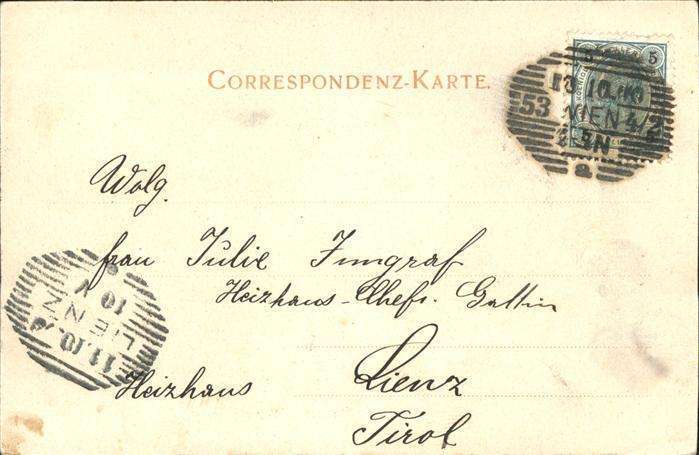 CORRESPONDENZ-KARTE.
5
10.
53 WIEN 4/2
a
Wolg.
frau Julie Jungraf
Heizhaus-Chefs. Gattin
Heizhaus Lienz
Tirol
11.10.
LIENZ
10 V